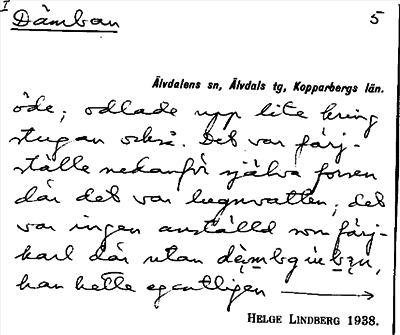 I
Dämban
5
Älvdalens sn, Älvdals tg, Kopparbergs län.
öde; odlade upp lite kring
stugan också. Det var färj-
ställe nedanför själva forsen
där det var lugnvatten; det
var ingen anställd som färj-
karl där utan
han hette egentligen
HELGE LINDBERG 1938.